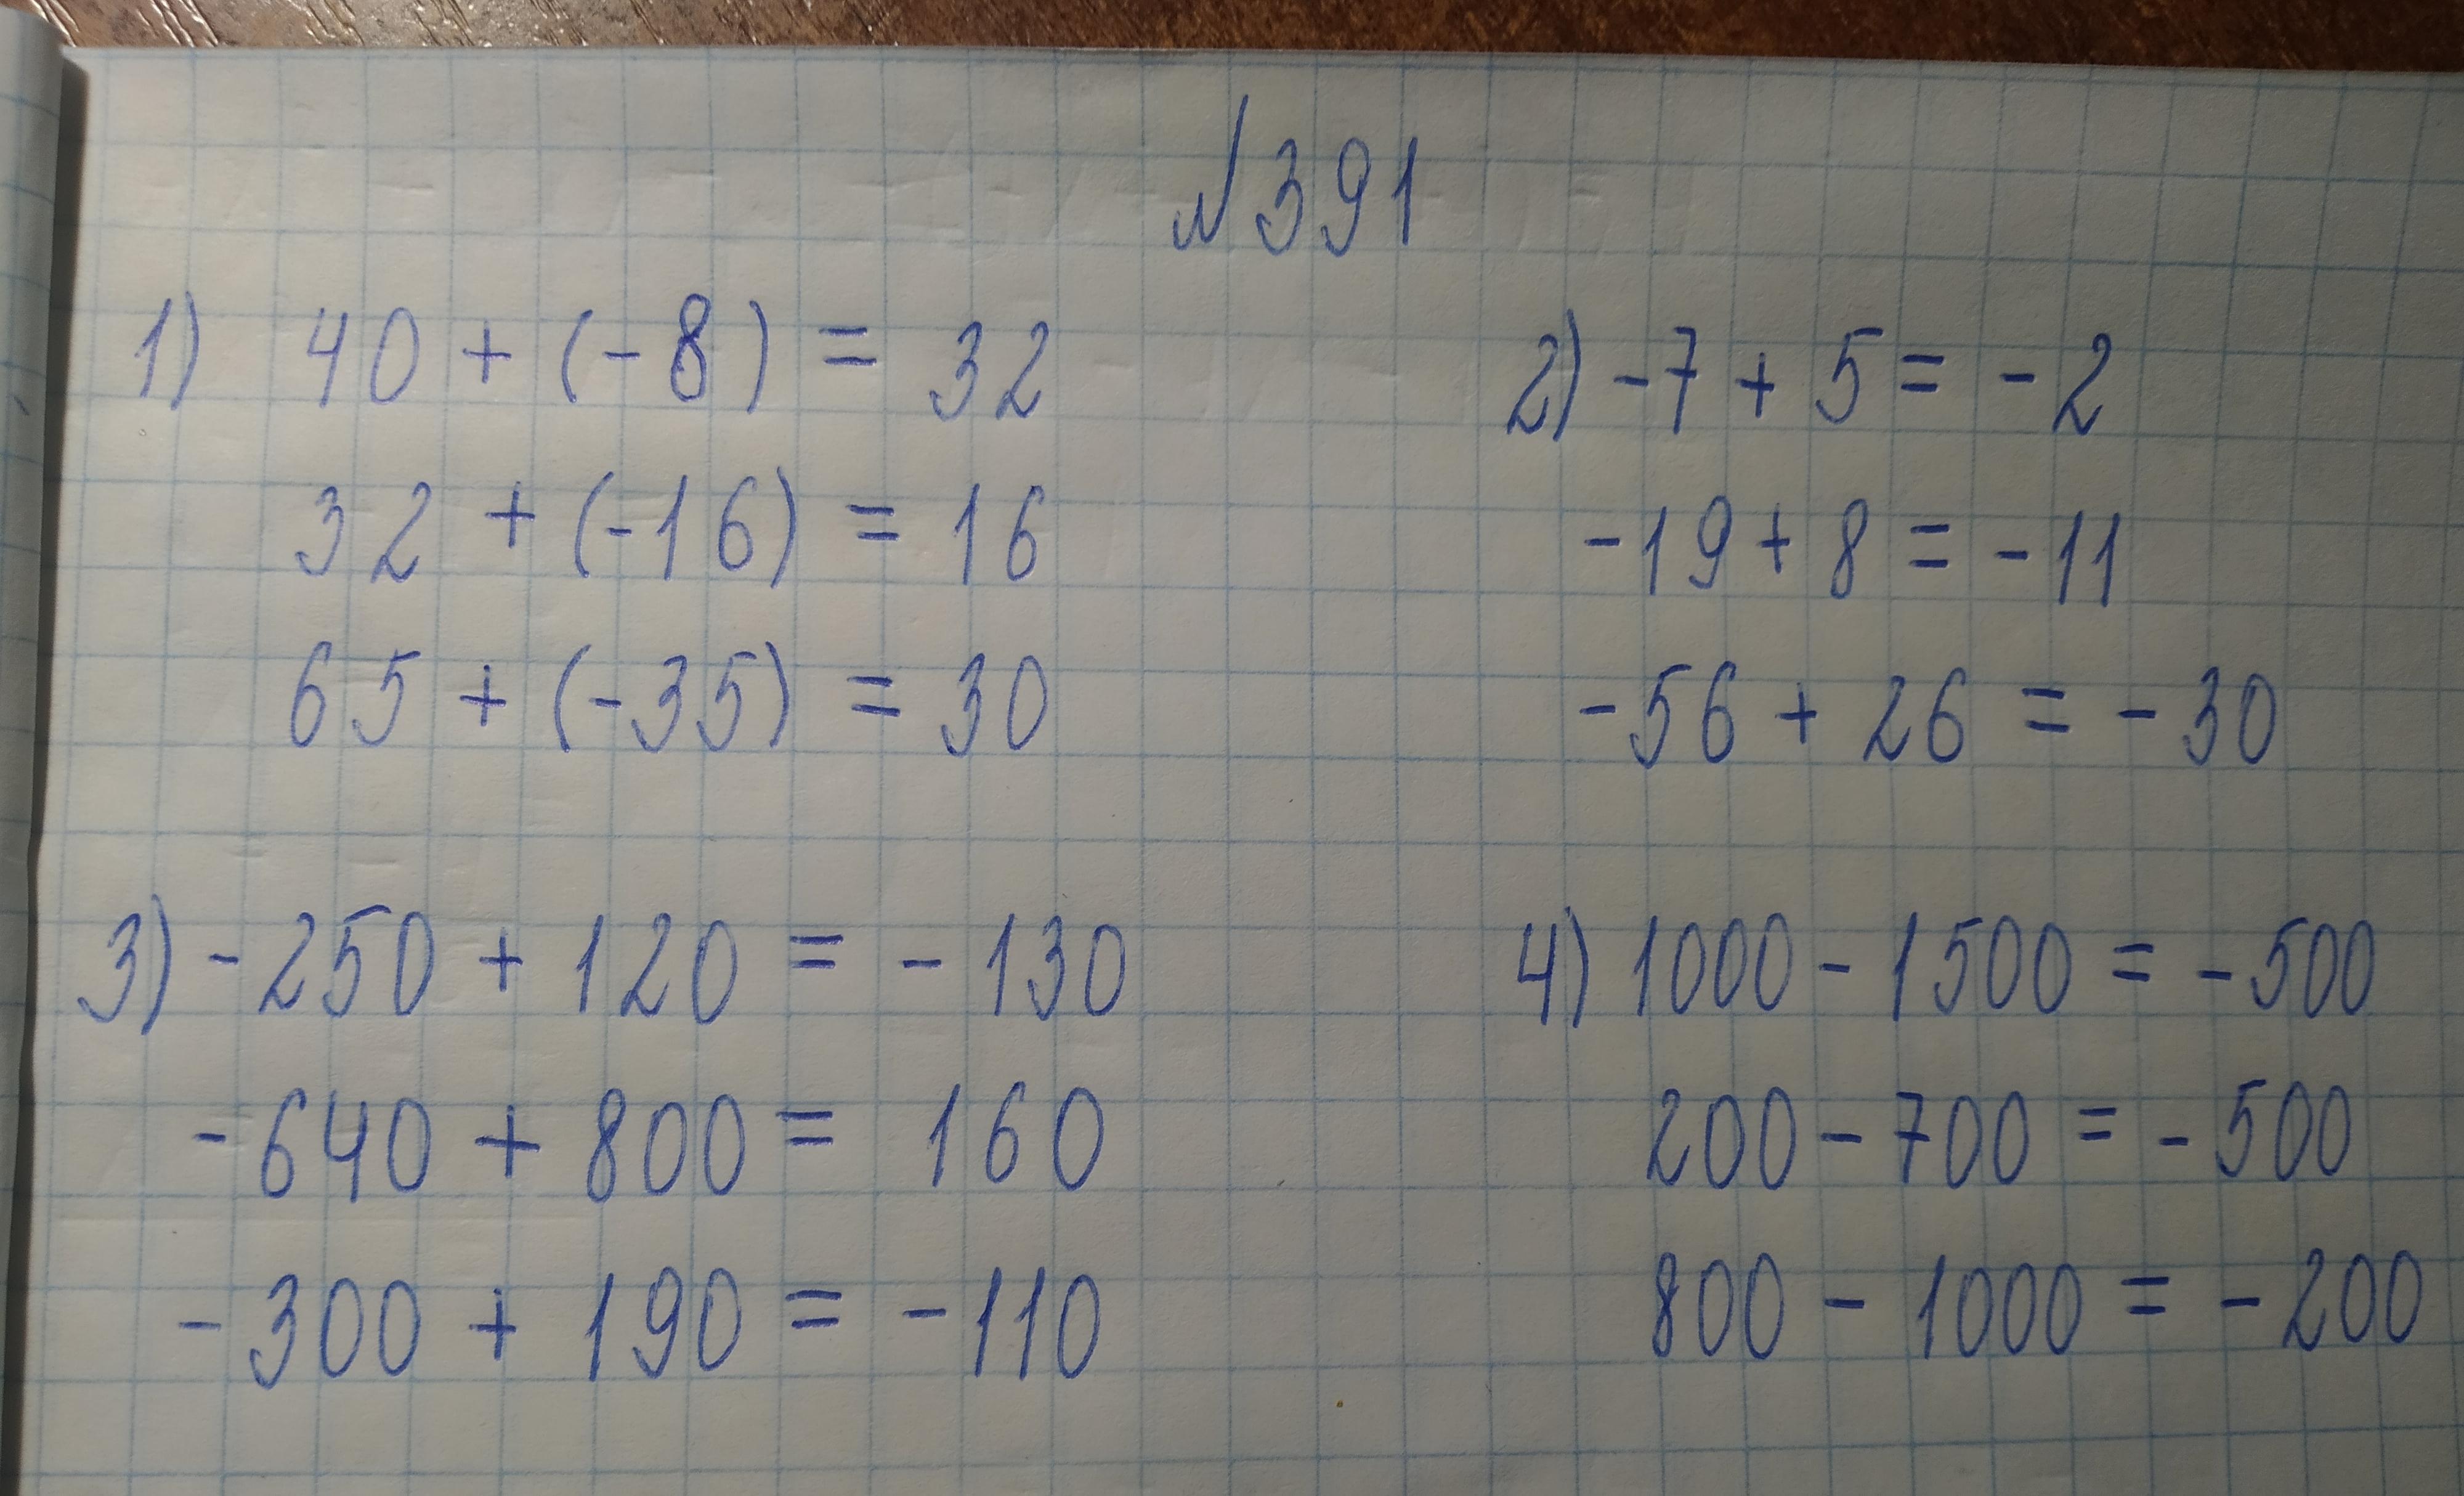 №391
1) 40 + (-8) = 32
32 + (-16) = 16
65 + (-35) = 30
2) -7 + 5 = -2
-19 + 8 = -11
-56 + 26 = -30
3) -250 + 120 = -130
-640 + 800 = 160
-300 + 190 = -110
4) 1000 - 1500 = -500
200 - 700 = -500
800 - 1000 = -200